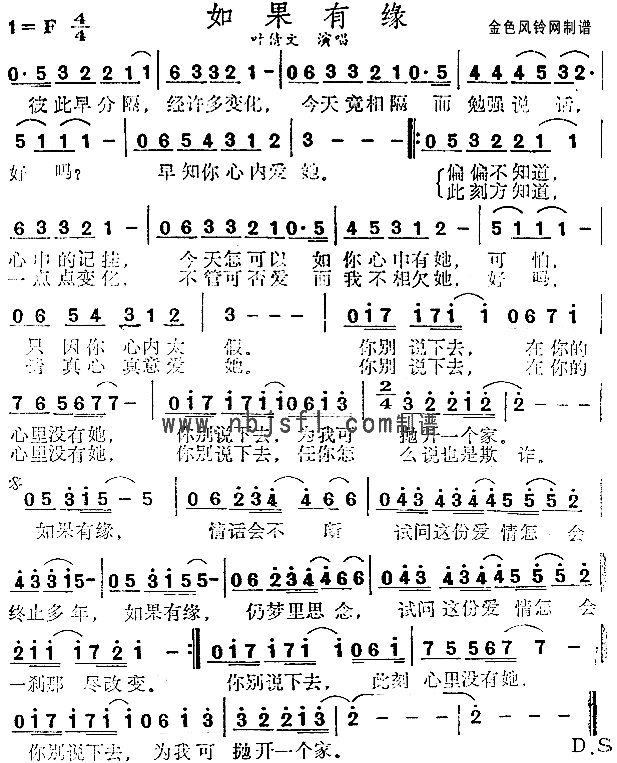 如果有缘
1=F 4/4 叶倩文 演唱 金色风铃网制谱
0·5 3 2 2 1 1 | 6 3 3 2 1 - | 0 6 3 3 2 2 1 0·5 | 4 5 3 3 3 2·
彼此早分隔，经许多变化，今天竟相隔 而 勉强说 话，
5 1 1 1 - | 0 6 5 4 3 1 2 | 3 - - - :0 5 3 2 2 1 1
好 吗？ 早知你心内爱 她。 偏偏不知道，
此刻方知道，
6 3 3 2 1 - | 0 6 3 3 2 2 1 0·5 | 4 5 3 1 2 | 5 1 1 1 -
心中的记挂， 今天怎可以 如 你心中有她， 可 怕，
一点点变化， 不管可否爱 而 我不相欠她， 好 吗，
0 6 5 4 3 1 2 | 3 - - - | 0 1 7 1 7 1 1 | 0 6 7 1
只 因你 心内太 假。 你别 说下去， 在你的
请 真心 真意爱 她。 你别 说下去， 在你的
7 6 5 6 7 7 - | 0 1 7 1 7 1 1 0 6 1 3 | 2/4 3 2 2 1 2 | 2 - - -
www.nbjsfl.com制谱
心里没有她， 你别说下去， 为我可 抛开一个家。
心里没有她， 你别说下去， 任你怎 么说也是欺 诈。
0 5 3 1 5 - 5 | 0 6 2 3 4 4 6 6 | 0 4 3 4 3 4 4 5 5 5 2
如果有缘， 情话会不 断 试问这份爱 情怎 会
4 3 3 1 5 - | 0 5 3 1 5 5 - | 0 6 2 2 3 4 4 6 6 | 0 4 3 4 3 4 4 5 5 5 2
终止多年， 如果有缘， 仍梦里思 念， 试问这份爱 情怎 会
2 1 1 1 7 2 1 - :0 1 7 1 7 1 1 0 6 1 | 7 5 5 6 7 7 -
一刹那 尽改变。 你别说下去， 此刻 心里没有她，
0 1 7 1 7 1 1 0 6 1 3 | 3 2 2 1 3 | 2 - - - | 2 - - -
你别说下去， 为我可 抛开一个家。 D.S